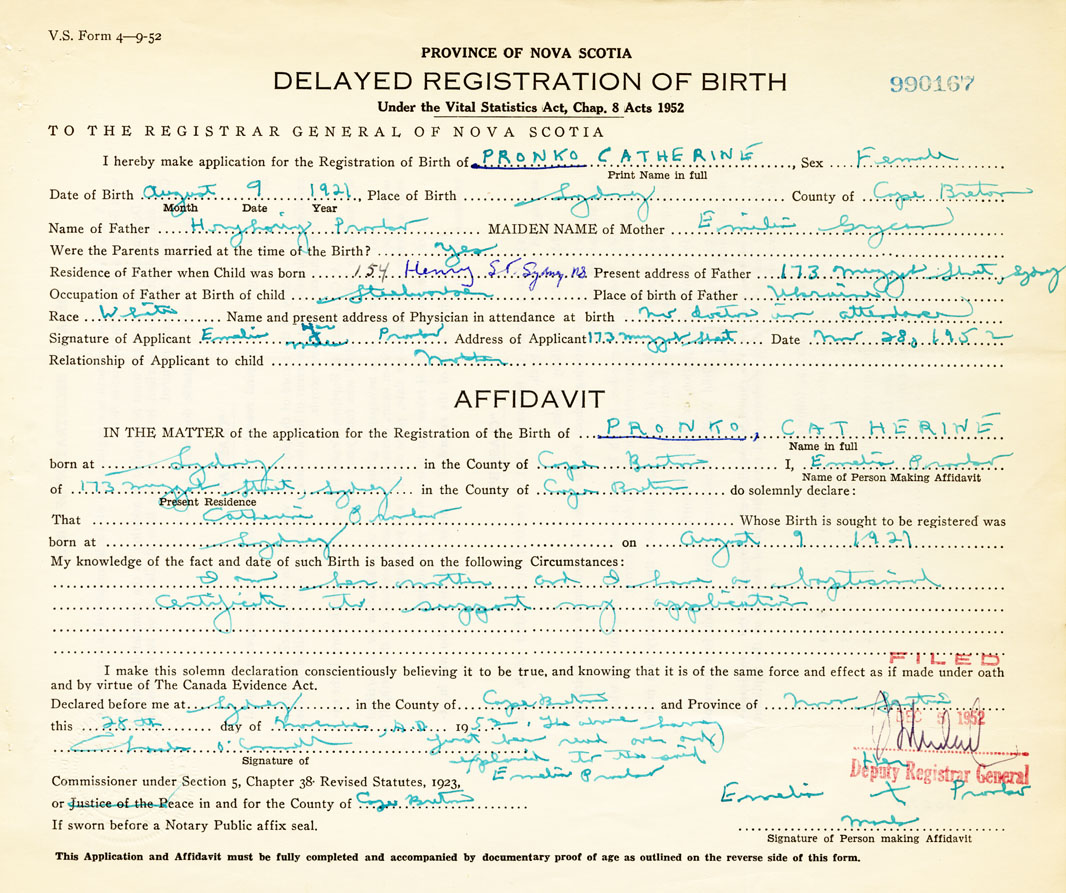 V.S. Form 4—9-52
PROVINCE OF NOVA SCOTIA
DELAYED REGISTRATION OF BIRTH
990167
Under the Vital Statistics Act, Chap. 8 Acts 1952
TO THE REGISTRAR GENERAL OF NOVA SCOTIA
I hereby make application for the Registration of Birth of PRONKO CATHERINE, Sex Female
Print Name in full
Date of Birth August 9 1921, Place of Birth Sydney County of Cape Breton
Month Date Year
Name of Father MAIDEN NAME of Mother Emilia
Were the Parents married at the time of the Birth? Yes
Residence of Father when Child was born 154 Henry St. Sydney NS Present address of Father 173 Muggot Street, Sydney
Occupation of Father at Birth of child Steelworker Place of birth of Father Ukraine
Race White Name and present address of Physician in attendance at birth no doctor in attendance
Signature of Applicant Emelia Address of Applicant 173 Muggot Street Date Nov 28, 1952
Relationship of Applicant to child Mother
AFFIDAVIT
IN THE MATTER of the application for the Registration of the Birth of PRONKO, CATHERINE
Name in full
born at Sydney in the County of Cape Breton I, Emelia Pronko
Name of Person Making Affidavit
of 173 Muggot Street, Sydney in the County of Cape Breton do solemnly declare:
Present Residence
That Catherine Pronko Whose Birth is sought to be registered was
born at Sydney on August 9 1921
My knowledge of the fact and date of such Birth is based on the following Circumstances:
I am her mother and I have a baptismal
certificate to support my application
FILED
I make this solemn declaration conscientiously believing it to be true, and knowing that it is of the same force and effect as if made under oath
and by virtue of The Canada Evidence Act.
Declared before me at Sydney in the County of Cape Breton and Province of Nova Scotia
this 28th day of November, A.D. 1952. The above having
DEC 5 1952
Charles O'Connell first been read over and
Signature of explained to the said
Emelia Pronko
Commissioner under Section 5, Chapter 38 Revised Statutes, 1923,
Deputy Registrar General
or Justice of the Peace in and for the County of Cape Breton
her
Emelia X Pronko
mark
If sworn before a Notary Public affix seal.
Signature of Person making Affidavit
This Application and Affidavit must be fully completed and accompanied by documentary proof of age as outlined on the reverse side of this form.